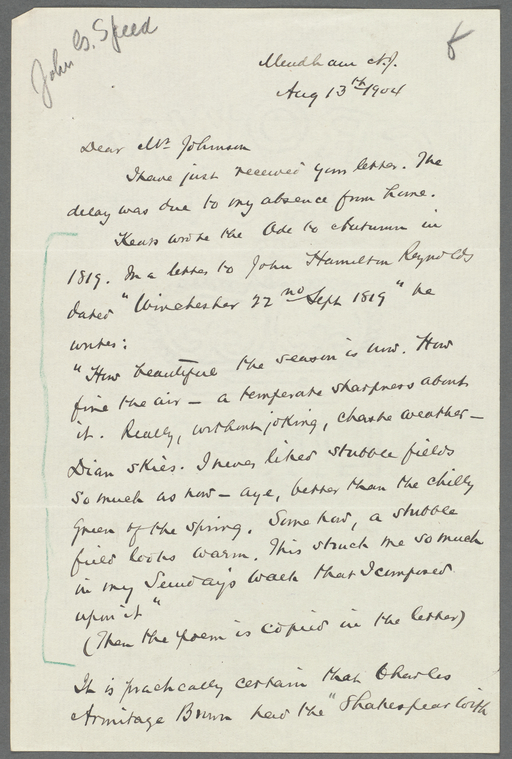 John G. Speed
Mendham N.J.
Aug 13th 1904
Dear Mr Johnson
I have just received your letter. The
delay was due to my absence from home.
Keats wrote the Ode to Autumn in
1819. In a letter to John Hamilton Reynolds
dated "Winchester 22nd Sept 1819" he
writes:
"How beautiful the season is now. How
fine the air — a temperate sharpness about
it. Really, without joking, chaste weather —
Dian skies. I never liked stubble fields
so much as now — aye, better than the chilly
green of the spring. Somehow, a stubble
field looks warm. This struck me so much
in my Sunday's walk that I composed
upon it"
(Then the poem is copied in the letter)
It is practically certain that Charles
Armitage Brown had the "Shakespear with